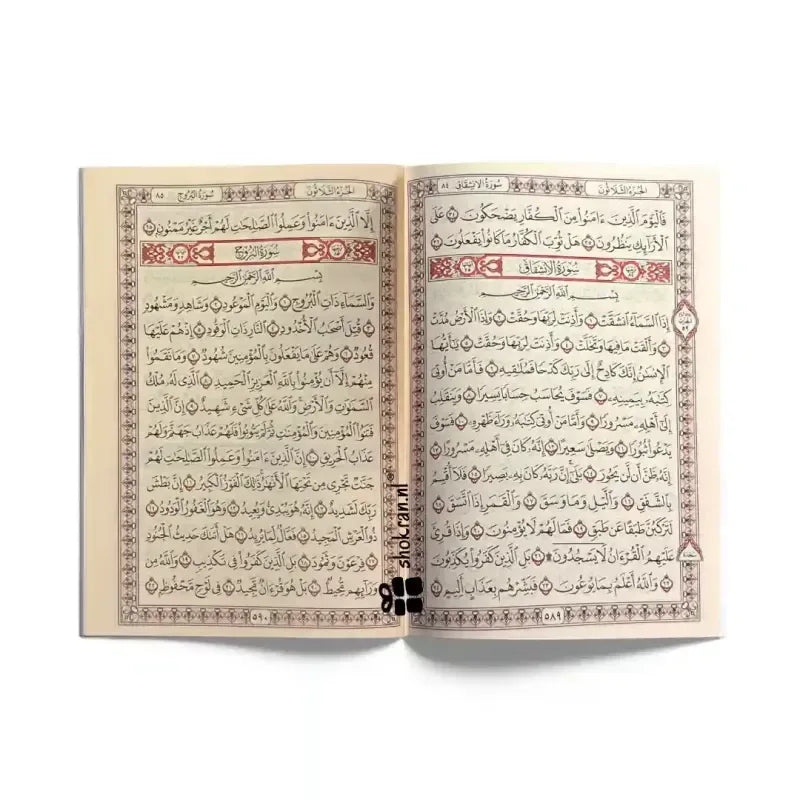 الجزء الثلاثون
سورة الانشقاق ٨٤
فَالْيَوْمَ الَّذِينَ ءَامَنُوا مِنَ الْكُفَّارِ يَضْحَكُونَ ٣٤ عَلَى
الْأَرَآئِكِ يَنظُرُونَ ٣٥ هَلْ ثُوِّبَ الْكُفَّارُ مَا كَانُوا يَفْعَلُونَ ٣٦
سُورَةُ الِانشِقَاقِ
بِسْمِ اللَّهِ الرَّحْمَٰنِ الرَّحِيمِ
إِذَا السَّمَآءُ انشَقَّتْ ١ وَأَذِنَتْ لِرَبِّهَا وَحُقَّتْ ٢ وَإِذَا الْأَرْضُ مُدَّتْ
٣ وَأَلْقَتْ مَا فِيهَا وَتَخَلَّتْ ٤ وَأَذِنَتْ لِرَبِّهَا وَحُقَّتْ ٥ يَٰٓأَيُّهَا
الْإِنسَٰنُ إِنَّكَ كَادِحٌ إِلَىٰ رَبِّكَ كَدْحًا فَمُلَٰقِيهِ ٦ فَأَمَّا مَنْ أُوتِيَ
كِتَٰبَهُۥ بِيَمِينِهِۦ ٧ فَسَوْفَ يُحَاسَبُ حِسَابًا يَسِيرًا ٨ وَيَنقَلِبُ
إِلَىٰٓ أَهْلِهِۦ مَسْرُورًا ٩ وَأَمَّا مَنْ أُوتِيَ كِتَٰبَهُۥ وَرَآءَ ظَهْرِهِۦ ١٠ فَسَوْفَ
يَدْعُوا ثُبُورًا ١١ وَيَصْلَىٰ سَعِيرًا ١٢ إِنَّهُۥ كَانَ فِيٓ أَهْلِهِۦ مَسْرُورًا ١٣
إِنَّهُۥ ظَنَّ أَن لَّن يَحُورَ ١٤ بَلَىٰٓ إِنَّ رَبَّهُۥ كَانَ بِهِۦ بَصِيرًا ١٥ فَلَآ أُقْسِمُ
بِالشَّفَقِ ١٦ وَالَّيْلِ وَمَا وَسَقَ ١٧ وَالْقَمَرِ إِذَا اتَّسَقَ ١٨
لَتَرْكَبُنَّ طَبَقًا عَن طَبَقٍ ١٩ فَمَا لَهُمْ لَا يُؤْمِنُونَ ٢٠ وَإِذَا قُرِئَ
عَلَيْهِمُ الْقُرْءَانُ لَا يَسْجُدُونَ ۩ ٢١ بَلِ الَّذِينَ كَفَرُوا يُكَذِّبُونَ
٢٢ وَاللَّهُ أَعْلَمُ بِمَا يُوعُونَ ٢٣ فَبَشِّرْهُم بِعَذَابٍ أَلِيمٍ ٢٤
٥٨٩
الجزء الثلاثون
سورة البروج ٨٥
إِلَّا الَّذِينَ ءَامَنُوا وَعَمِلُوا الصَّٰلِحَٰتِ لَهُمْ أَجْرٌ غَيْرُ مَمْنُونٍ ٢٥
سُورَةُ الْبُرُوجِ
بِسْمِ اللَّهِ الرَّحْمَٰنِ الرَّحِيمِ
وَالسَّمَآءِ ذَاتِ الْبُرُوجِ ١ وَالْيَوْمِ الْمَوْعُودِ ٢ وَشَاهِدٍ وَمَشْهُودٍ
٣ قُتِلَ أَصْحَٰبُ الْأُخْدُودِ ٤ النَّارِ ذَاتِ الْوَقُودِ ٥ إِذْ هُمْ عَلَيْهَا
قُعُودٌ ٦ وَهُمْ عَلَىٰ مَا يَفْعَلُونَ بِالْمُؤْمِنِينَ شُهُودٌ ٧ وَمَا نَقَمُوا
مِنْهُمْ إِلَّآ أَن يُؤْمِنُوا بِاللَّهِ الْعَزِيزِ الْحَمِيدِ ٨ الَّذِي لَهُۥ مُلْكُ
السَّمَٰوَٰتِ وَالْأَرْضِ وَاللَّهُ عَلَىٰ كُلِّ شَيْءٍ شَهِيدٌ ٩ إِنَّ الَّذِينَ
فَتَنُوا الْمُؤْمِنِينَ وَالْمُؤْمِنَٰتِ ثُمَّ لَمْ يَتُوبُوا فَلَهُمْ عَذَابُ جَهَنَّمَ وَلَهُمْ
عَذَابُ الْحَرِيقِ ١٠ إِنَّ الَّذِينَ ءَامَنُوا وَعَمِلُوا الصَّٰلِحَٰتِ لَهُمْ
جَنَّٰتٌ تَجْرِي مِن تَحْتِهَا الْأَنْهَٰرُ ذَٰلِكَ الْفَوْزُ الْكَبِيرُ ١١ إِنَّ بَطْشَ
رَبِّكَ لَشَدِيدٌ ١٢ إِنَّهُۥ هُوَ يُبْدِئُ وَيُعِيدُ ١٣ وَهُوَ الْغَفُورُ الْوَدُودُ ١٤
ذُو الْعَرْشِ الْمَجِيدُ ١٥ فَعَّالٌ لِّمَا يُرِيدُ ١٦ هَلْ أَتَىٰكَ حَدِيثُ الْجُنُودِ
١٧ فِرْعَوْنَ وَثَمُودَ ١٨ بَلِ الَّذِينَ كَفَرُوا فِي تَكْذِيبٍ ١٩ وَاللَّهُ مِن
وَرَآئِهِم مُّحِيطٌ ٢٠ بَلْ هُوَ قُرْءَانٌ مَّجِيدٌ ٢١ فِي لَوْحٍ مَّحْفُوظٍ ٢٢
٥٩٠
shok.ran.nl